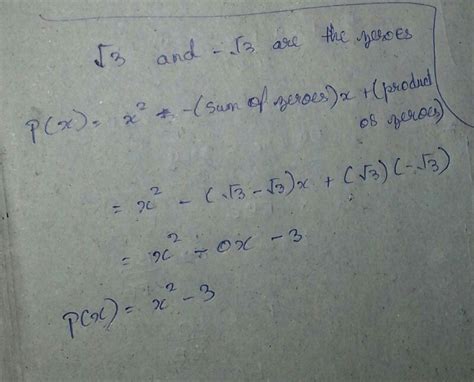 √3 and -√3 are the zeroes
P(x) = x² - (sum of zeroes)x + (product
of zeroes)
= x² - (√3 - √3)x + (√3)(-√3)
= x² - 0x - 3
P(x) = x² - 3